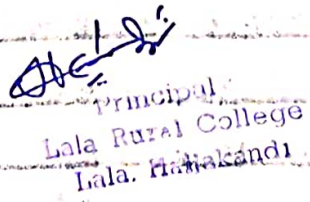 Principal
Lala Rural College
Lala, Hailakandi